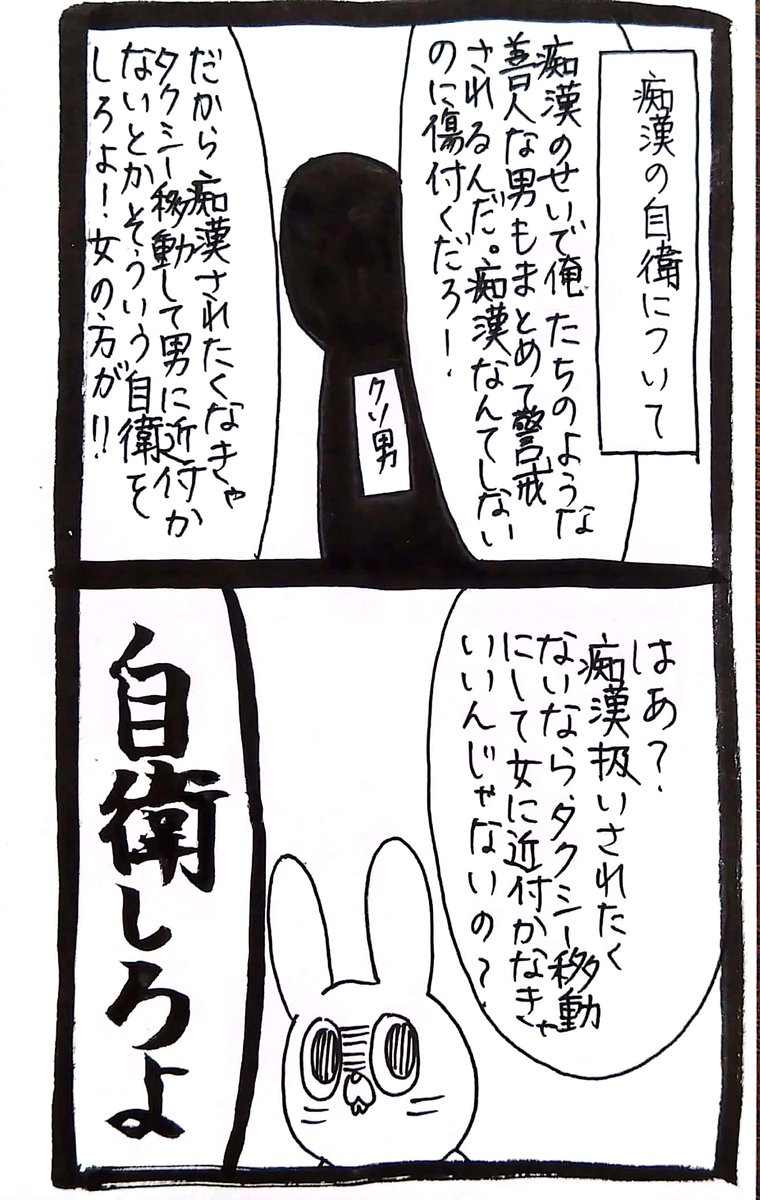 痴漢の自衛について
痴漢のせいで俺たちのような
善人な男もまとめて警戒
されるんだ。痴漢なんてしない
のに傷付くだろー!
クソ男
だから痴漢されたくなきゃ
タクシー移動して男に近付か
ないとかそういう自衛を
しろよ!女の方が!!
はあ?
痴漢扱いされたく
ないなら、タクシー移動
にして女に近付かなきゃ
いいんじゃないの?
自衛しろよ